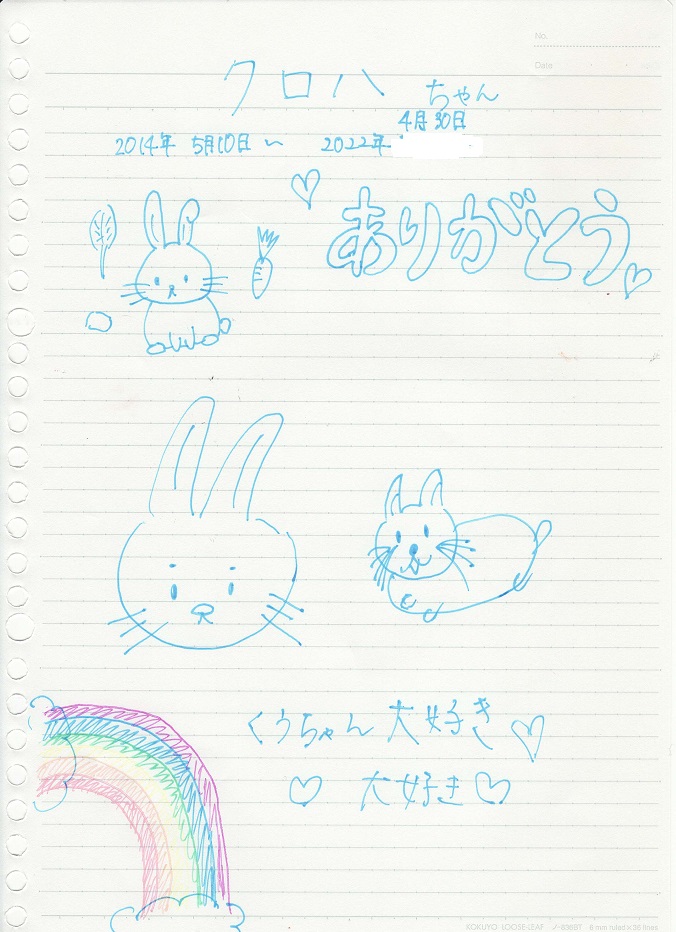 No.
Date
クロハ ちゃん
4月30日
2014年 5月10日 〜 2022年
ありがとう
くうちゃん 大好き
大好き
KOKUYO LOOSE-LEAF ノ-836BT 6 mm ruled x 36 lines